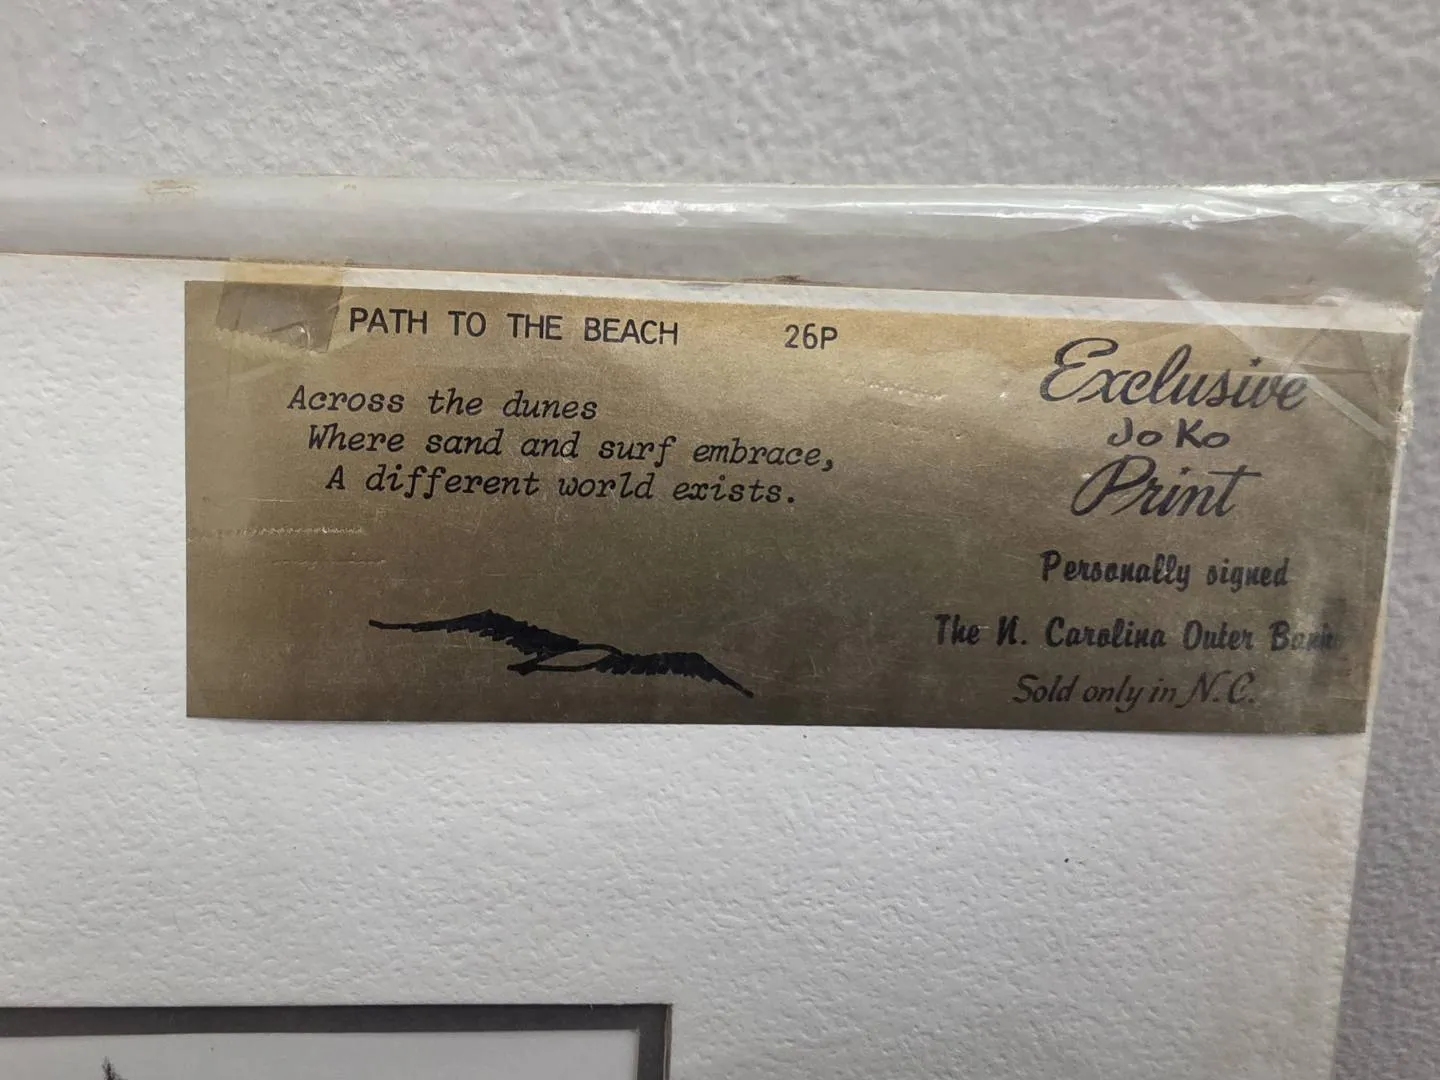 PATH TO THE BEACH 26P
Across the dunes
Where sand and surf embrace,
A different world exists.
Exclusive
Jo Ko
Print
Personally signed
The N. Carolina Outer Banks
Sold only in N.C.